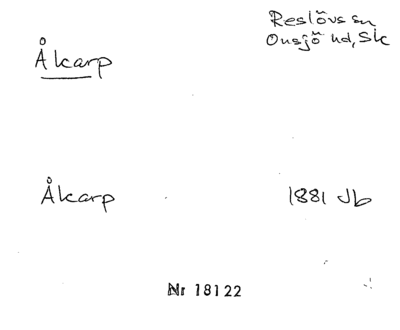 Ålkarp
Reslövs sn
Onsjö hd, Sk
Ålkarp
1881 Jb
Nr 18122